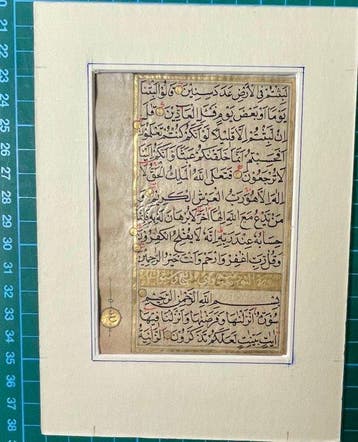 لبثتم في الأرض عدد سنين قالوا لبثنا
يوما أو بعض يوم فسئل العادين قل
إن لبثتم إلا قليلا لو أنكم كنتم تعلمون
أفحسبتم أنما خلقنكم عبثا وأنكم إلينا
لا ترجعون فتعلى الله الملك الحق لا
إله إلا هو رب العرش الكريم و
من يدع مع الله إلها آخر لا برهان له به فإنما
حسابه عند ربه إنه لا يفلح الكفرون
وقل رب اغفر وارحم وأنت خير الرحمين
بسم الله الرحمن الرحيم
سورة أنزلنها وفرضنها وأنزلنا فيها
آيت بينت لعلكم تذكرون الزانية
21
22
23
24
25
26
27
28
29
30
31
32
33
34
35
36
37
38